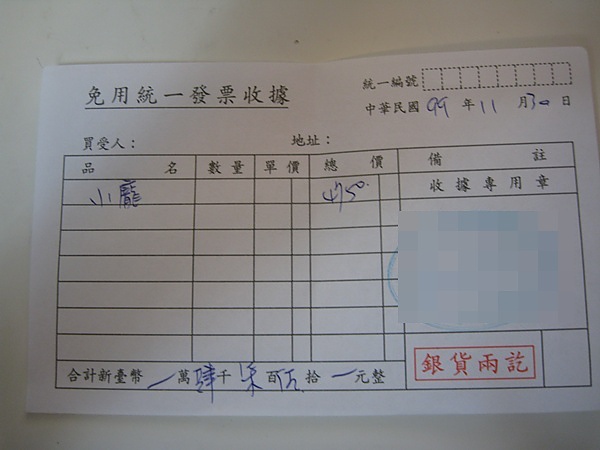 免用統一發票收據
統一編號
中華民國 99 年 11 月 30 日
買受人： 地址：
品名 數量 單價 總價 備註
4750. 收據專用章
銀貨兩訖
合計新臺幣 一萬肆千柒百伍拾一元整